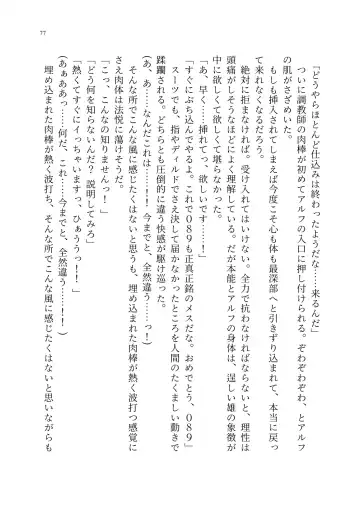 77
「どうやらほとんど仕込みは終わったようだな……来るんだ」
ついに調教師の肉棒が初めてアルファの入口に押し付けられる。ぞわぞわぞわ、とアルフ
の肌がさざめいた。
もしも挿入されてしまえば今度こそ心も体も最深部へと引きずり込まれて、本当に戻っ
て来れなくなるだろう。
絶対に拒まなければ。受け入れてはいけない。全力で抗わなければならないと、理性は
頭痛がしそうなほどによく理解している。だが本能とアルフの身体は、逞しい雄の象徴が
中に欲しくて欲しくて堪らなかった。
「あ、早く……挿れてっ、欲しいです……！」
「すぐにぶち込んでやるよ。これで０８９も正真正銘のメスだな。おめでとう、０８９」
スーツでも、指やディルドでさえ決して届かなかったところを人間のたくましい動きで
蹂躙される。どちらとも圧倒的に違う快感が駆け巡った。
（あ、あ……なんだこれは……！　今までと、全然違う……っ！）
そんな所でこんな風に感じたくはないと思うも、埋め込まれた肉棒が熱く波打つ感覚に
さえ肉体は法悦に蕩けそうだ。
「こっ、こんなの知りませんっ！」
「どう何を知らないんだ？　説明してみろ」
「熱くてすぐにイっちゃいますっ、ひぁううっ！！」
（あぁああっ……何だ、これ……今までと、全然違う……！！）
埋め込まれた肉棒が熱く波打ち、そんな所でこんな風に感じたくはないと思いながらも